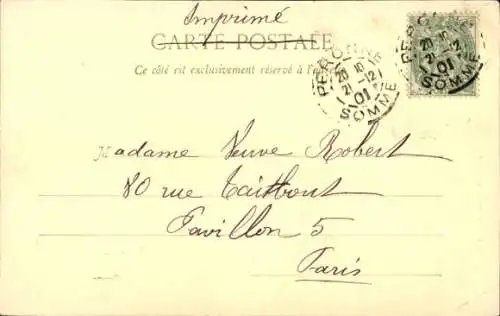 Imprimé
CARTE POSTALE
Ce côté est exclusivement réservé à l'adresse
PERONNE
20 10
21-12
01
SOMME
PERONNE
20 10
21-12
01
SOMME
Madame Veuve Robert
80 rue Taitbout
Pavillon 5
Paris